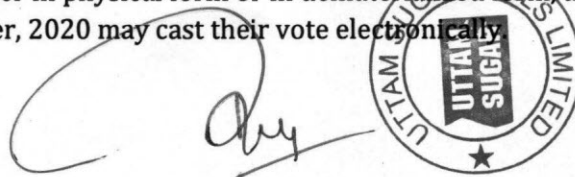 er, 2020 may cast their vote electronically.
UTTAM SU
S LIMITED
UTTAM
SUGAR